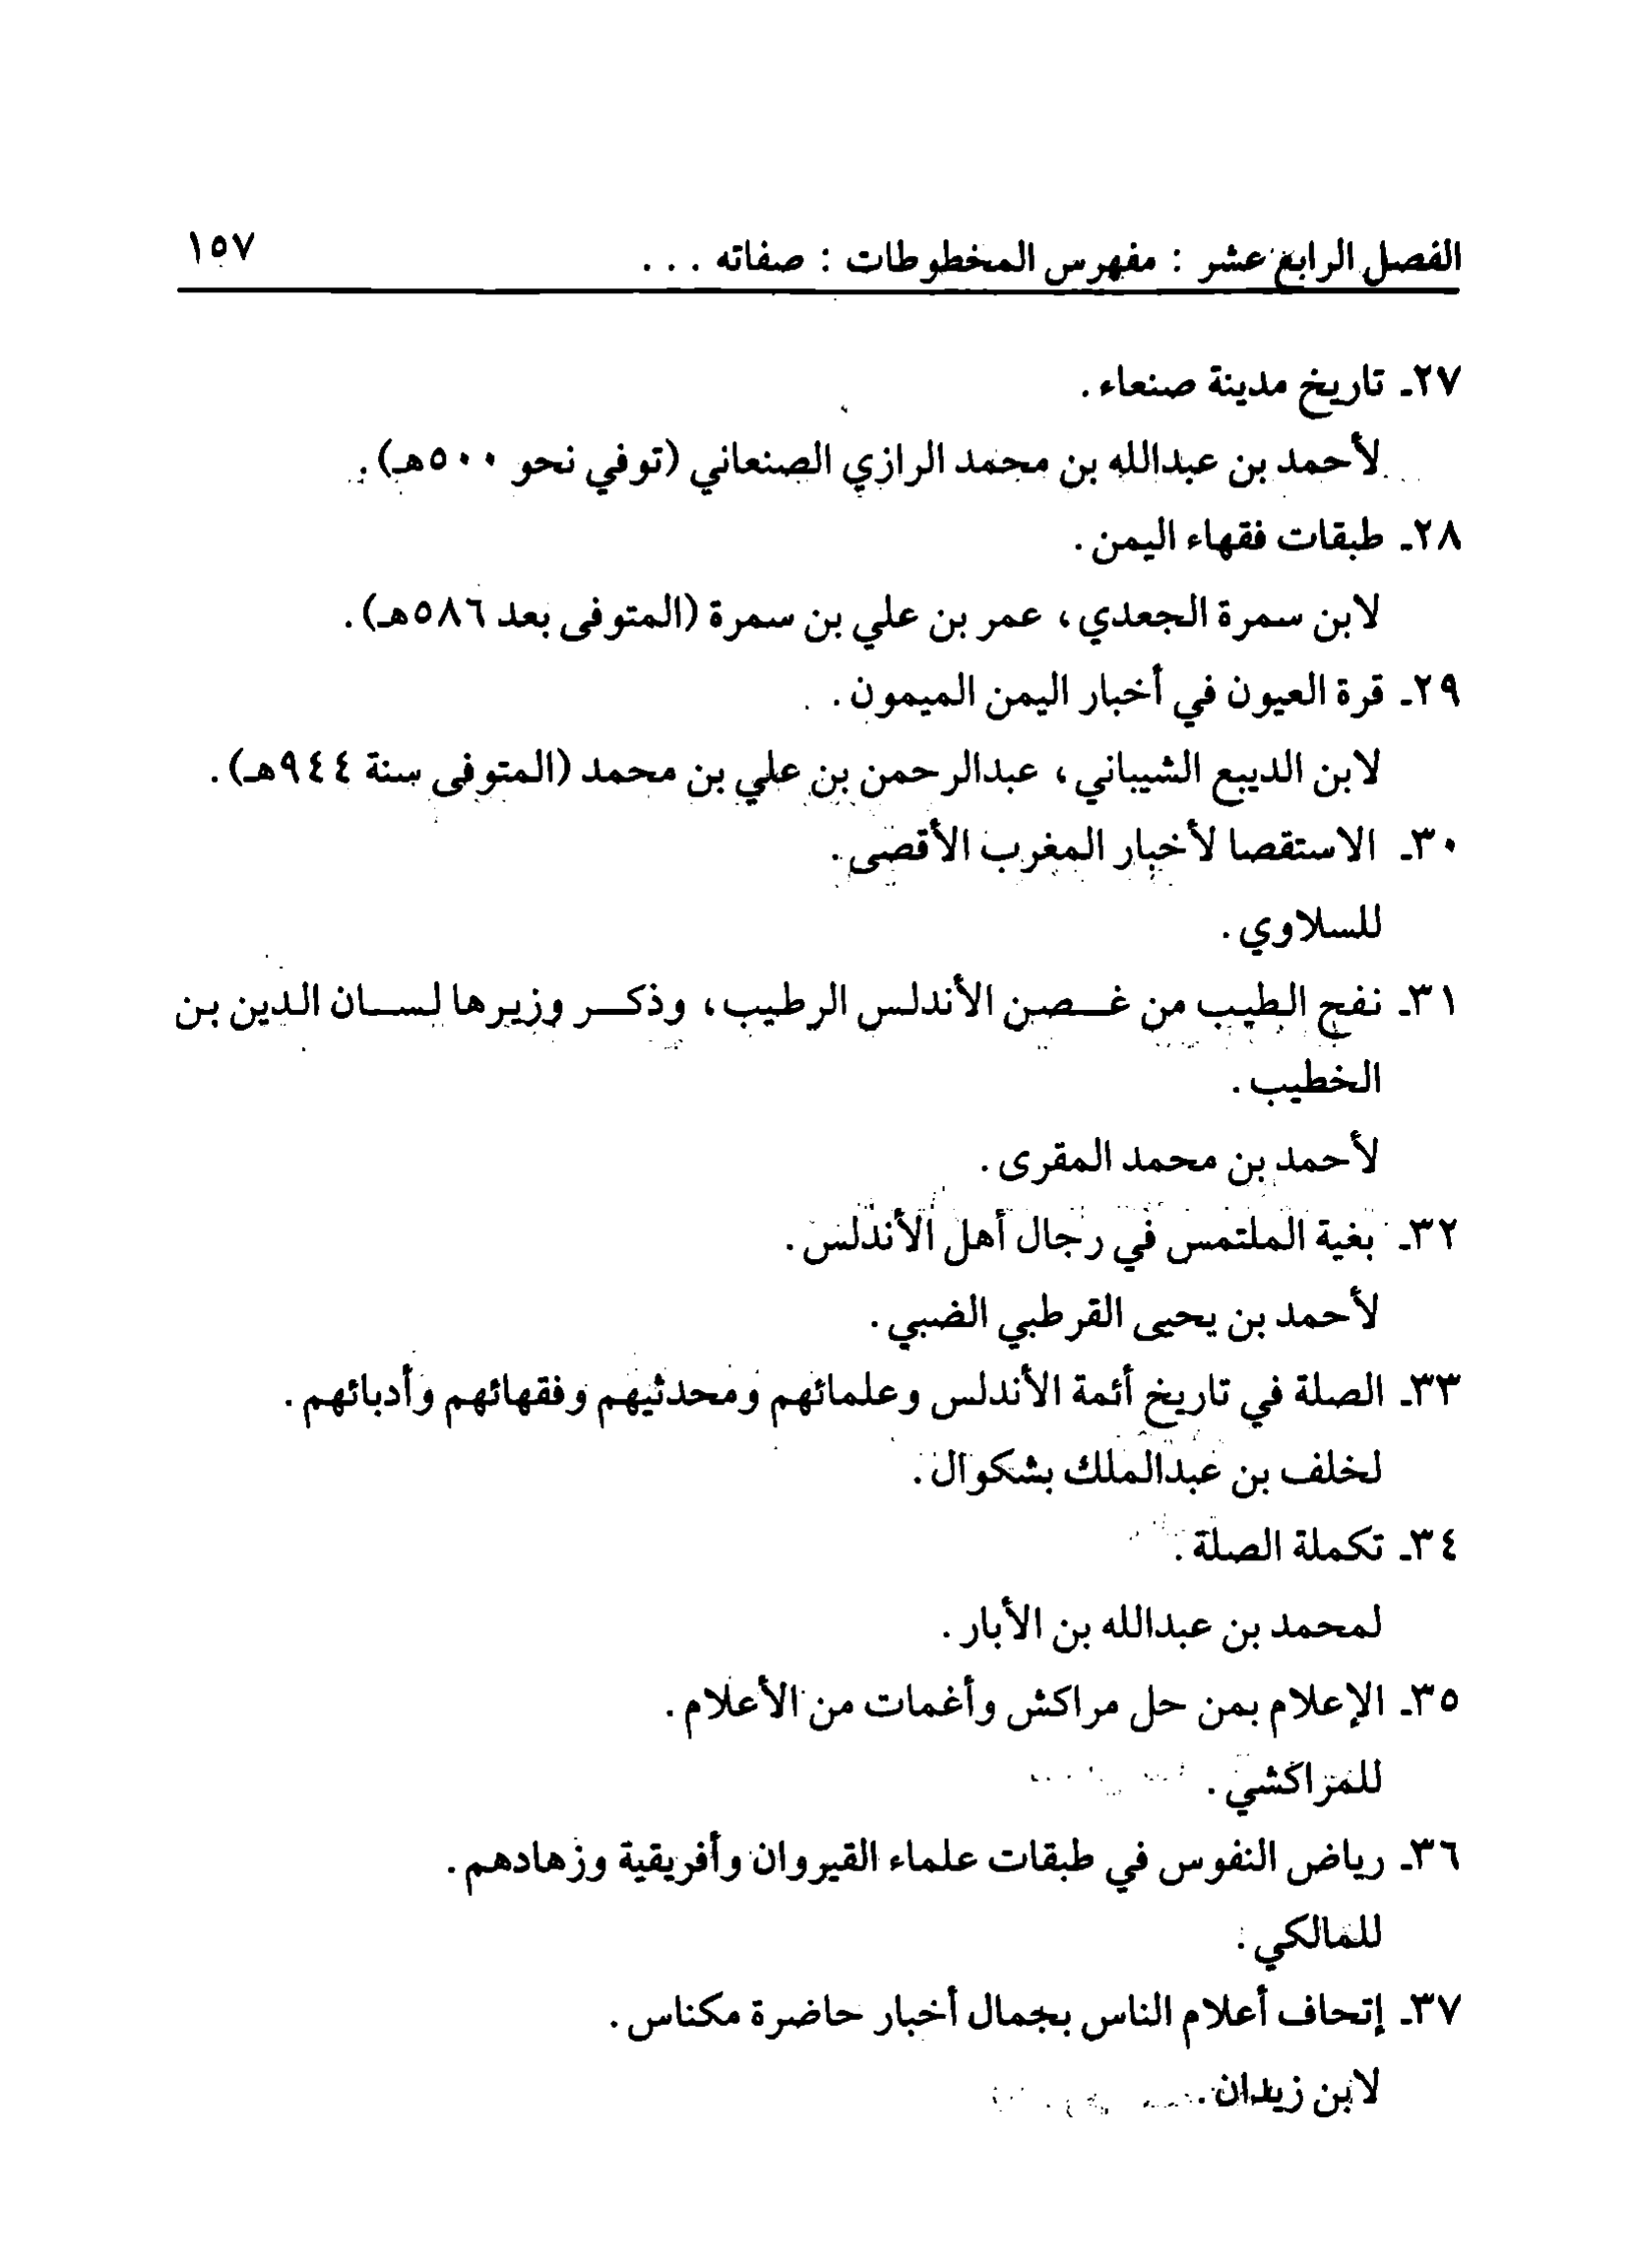 الفصل الرابع عشر : مفهرس المخطوطات : صفاته . . . ١٥٧
٢٧ـ تاريخ مدينة صنعاء .
لأحمد بن عبدالله بن محمد الرازي الصنعاني (توفي نحو ٥٠٠هـ) .
٢٨ـ طبقات فقهاء اليمن .
لابن سمرة الجعدي ، عمر بن علي بن سمرة (المتوفى بعد ٥٨٦هـ) .
٢٩ـ قرة العيون في أخبار اليمن الميمون .
لابن الديبع الشيباني ، عبدالرحمن بن علي بن محمد (المتوفى سنة ٩٤٤هـ) .
٣٠ـ الاستقصا لأخبار المغرب الأقصى .
للسلاوي .
٣١ـ نفح الطيب من غـصن الأندلس الرطيب ، وذكـر وزيرها لسـان الدين بن
الخطيب .
لأحمد بن محمد المقرى .
٣٢ـ بغية الملتمس في رجال أهل الأندلس .
لأحمد بن يحيى القرطبي الضبي .
٣٣ـ الصلة في تاريخ أئمة الأندلس وعلمائهم ومحدثيهم وفقهائهم وأدبائهم .
لخلف بن عبدالملك بشكوال .
٣٤ـ تكملة الصلة .
لمحمد بن عبدالله بن الأبار .
٣٥ـ الإعلام بمن حل مراكش وأغمات من الأعلام .
للمراكشي .
٣٦ـ رياض النفوس في طبقات علماء القيروان وأفريقية وزهادهم .
للمالكي .
٣٧ـ إتحاف أعلام الناس بجمال أخبار حاضرة مكناس .
لابن زيدان .